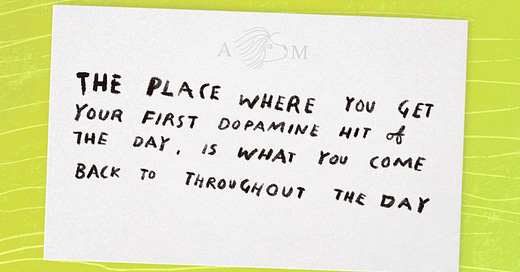 A M
THE PLACE WHERE YOU GET
YOUR FIRST DOPAMINE HIT of
THE DAY, IS WHAT YOU COME
BACK TO THROUGHOUT THE DAY